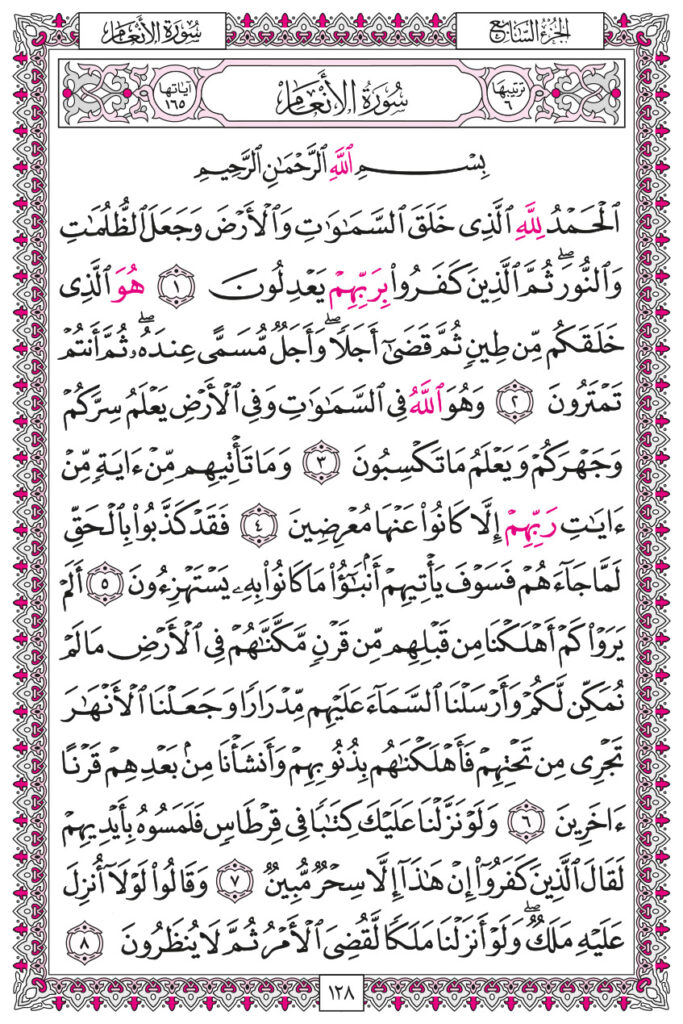 الجزء السابع
سورة الأنعام
ترتيبها ٦
سُورَةُ الأَنْعَامِ
آياتها ١٦٥
بِسْمِ ٱللَّهِ ٱلرَّحْمَٰنِ ٱلرَّحِيمِ
ٱلْحَمْدُ لِلَّهِ ٱلَّذِى خَلَقَ ٱلسَّمَٰوَٰتِ وَٱلْأَرْضَ وَجَعَلَ ٱلظُّلُمَٰتِ
وَٱلنُّورَ ۖ ثُمَّ ٱلَّذِينَ كَفَرُوا۟ بِرَبِّهِمْ يَعْدِلُونَ ١ هُوَ ٱلَّذِى
خَلَقَكُم مِّن طِينٍ ثُمَّ قَضَىٰٓ أَجَلًا ۖ وَأَجَلٌ مُّسَمًّى عِندَهُۥ ۖ ثُمَّ أَنتُمْ
تَمْتَرُونَ ٢ وَهُوَ ٱللَّهُ فِى ٱلسَّمَٰوَٰتِ وَفِى ٱلْأَرْضِ يَعْلَمُ سِرَّكُمْ
وَجَهْرَكُمْ وَيَعْلَمُ مَا تَكْسِبُونَ ٣ وَمَا تَأْتِيهِم مِّنْ ءَايَةٍ مِّنْ
ءَايَٰتِ رَبِّهِمْ إِلَّا كَانُوا۟ عَنْهَا مُعْرِضِينَ ٤ فَقَدْ كَذَّبُوا۟ بِٱلْحَقِّ
لَمَّا جَآءَهُمْ فَسَوْفَ يَأْتِيهِمْ أَنۢبَٰٓؤُا۟ مَا كَانُوا۟ بِهِۦ يَسْتَهْزِءُونَ ٥ أَلَمْ
يَرَوْا۟ كَمْ أَهْلَكْنَا مِن قَبْلِهِم مِّن قَرْنٍ مَّكَّنَّٰهُمْ فِى ٱلْأَرْضِ مَا لَمْ
نُمَكِّن لَّكُمْ وَأَرْسَلْنَا ٱلسَّمَآءَ عَلَيْهِم مِّدْرَارًا وَجَعَلْنَا ٱلْأَنْهَٰرَ
تَجْرِى مِن تَحْتِهِمْ فَأَهْلَكْنَٰهُم بِذُنُوبِهِمْ وَأَنشَأْنَا مِنۢ بَعْدِهِمْ قَرْنًا
ءَاخَرِينَ ٦ وَلَوْ نَزَّلْنَا عَلَيْكَ كِتَٰبًا فِى قِرْطَاسٍ فَلَمَسُوهُ بِأَيْدِيهِمْ
لَقَالَ ٱلَّذِينَ كَفَرُوٓا۟ إِنْ هَٰذَآ إِلَّا سِحْرٌ مُّبِينٌ ٧ وَقَالُوا۟ لَوْلَآ أُنزِلَ
عَلَيْهِ مَلَكٌ ۖ وَلَوْ أَنزَلْنَا مَلَكًا لَّقُضِىَ ٱلْأَمْرُ ثُمَّ لَا يُنظَرُونَ ٨
١٢٨